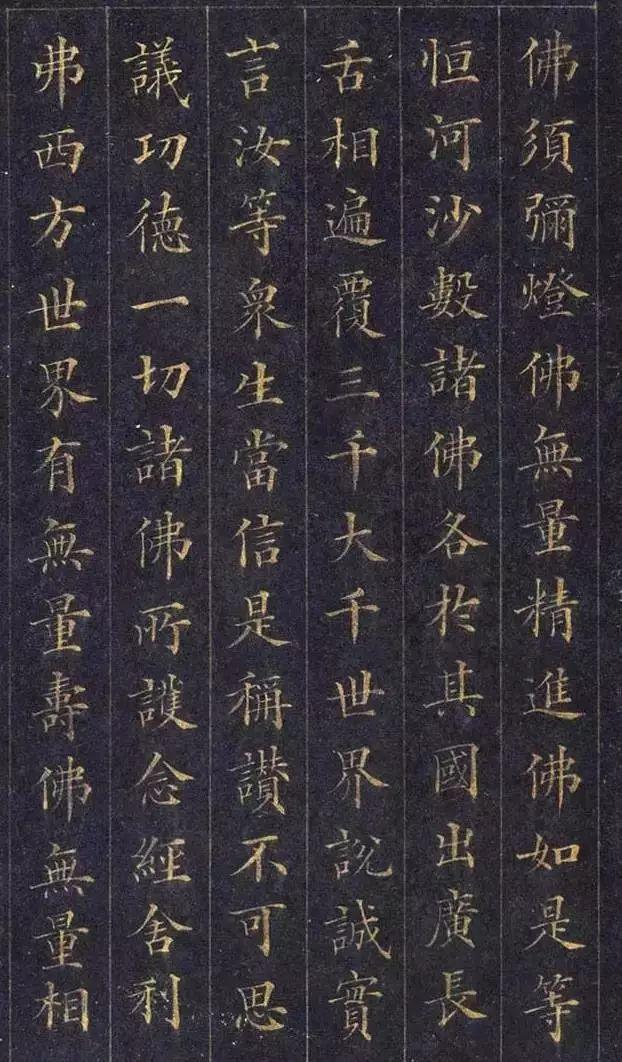 佛須彌燈佛無量精進佛如是等
恒河沙數諸佛各於其國出廣長
舌相遍覆三千大千世界說誠實
言汝等眾生當信是稱讚不可思
議功德一切諸佛所護念經舍利
弗西方世界有無量壽佛無量相